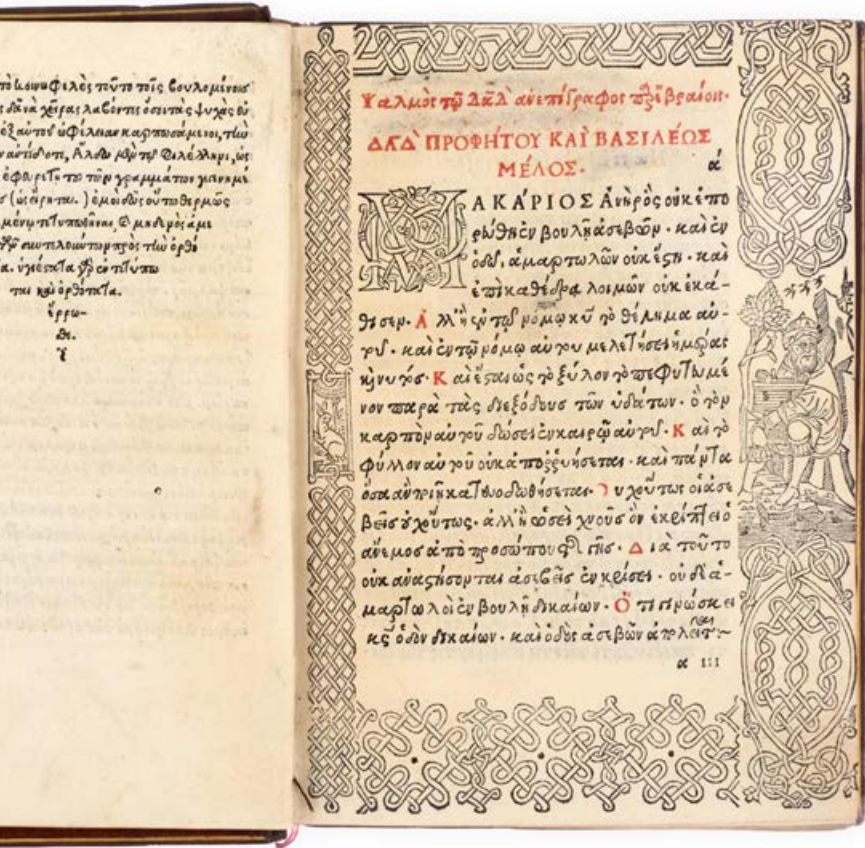 τὸ κοινωφελὲς τοῦτο τοῖς βουλομένοις
χεῖρας λαβόντες ὅσοι τὰς ψυχὰς
ἐξ αὐτοῦ ὠφέλειαν καρπωσάμενοι, τὴν
Ἄλδῳ μὲν τῷ φιλέλληνι, ὡς
τῶν γραμμάτων
(ὡς εἴρηται.) ἐμοὶ δὲ ὡς οὕτω θερμῶς
πρὸς τὴν ὀρθό
ὑγιέστατα γὰρ ἐντετύπω
ται καὶ ὀρθότατα.
ἔρρω-
σθε.
Ψαλμὸς τῷ Δαδ ἀνεπίγραφος παρ' ἑβραίοις.
ΔΑΔ ΠΡΟΦΗΤΟΥ ΚΑΙ ΒΑΣΙΛΕΩΣ
ΜΕΛΟΣ. α
ΜΑΚΑΡΙΟΣ Ἀνὴρ ὃς οὐκ ἐπο
ρεύθη ἐν βουλῇ ἀσεβῶν. καὶ ἐν
ὁδῷ, ἁμαρτωλῶν οὐκ ἔστη. καὶ
ἐπὶ καθέδρα λοιμῶν οὐκ ἐκά-
θισεν. Ἀλλ' ἢ ἐν τῷ νόμῳ κυ τὸ θέλημα αὐ-
τοῦ. καὶ ἐν τῷ νόμῳ αὐτοῦ μελετήσει ἡμέρας
καὶ νυκτός. Καὶ ἔσται ὡς τὸ ξύλον τὸ πεφυτευμέ
νον παρὰ τὰς διεξόδους τῶν ὑδάτων. ὃ τὸν
καρπὸν αὐτοῦ δώσει ἐν καιρῷ αὐτοῦ. Καὶ τὸ
φύλλον αὐτοῦ οὐκ ἀπορρυήσεται. καὶ πάντα
ὅσα ἂν ποιῇ κατευοδωθήσεται. Οὐχ οὕτως οἱ ἀσε
βεῖς οὐχ οὕτως. ἀλλ' ἢ ὡσεὶ χνοῦς ὃν ἐκρίπτει ὁ
ἄνεμος ἀπὸ προσώπου τῆς γῆς. Διὰ τοῦτο
οὐκ ἀναστήσονται ἀσεβεῖς ἐν κρίσει. οὐδὲ ἁ-
μαρτωλοὶ ἐν βουλῇ δικαίων. Ὅτι γινώσκει
κς ὁδὸν δικαίων. καὶ ὁδὸς ἀσεβῶν ἀπολεῖται
α iii